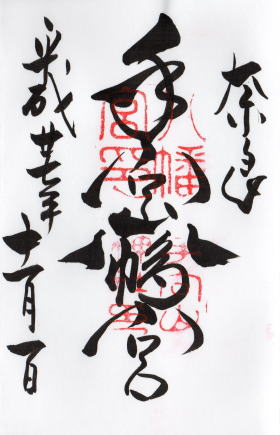 奈良
手向山八幡宮
平成廿七年十一月一日
八幡宮印